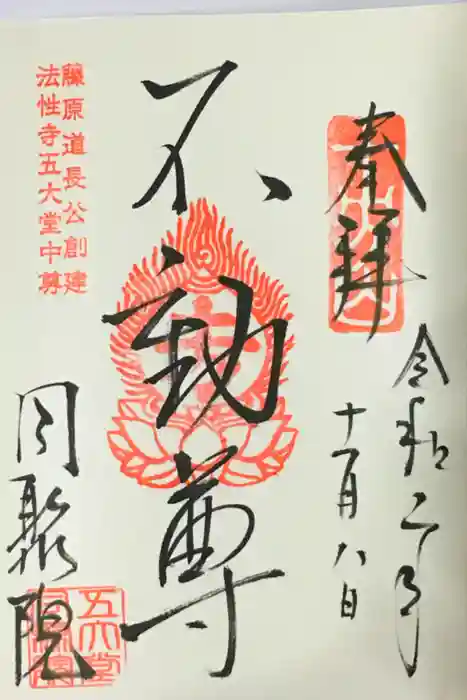 奉拝
令和二年
十一月八日
不動尊
藤原道長公創建
法性寺五大堂中尊
同聚院
五大堂